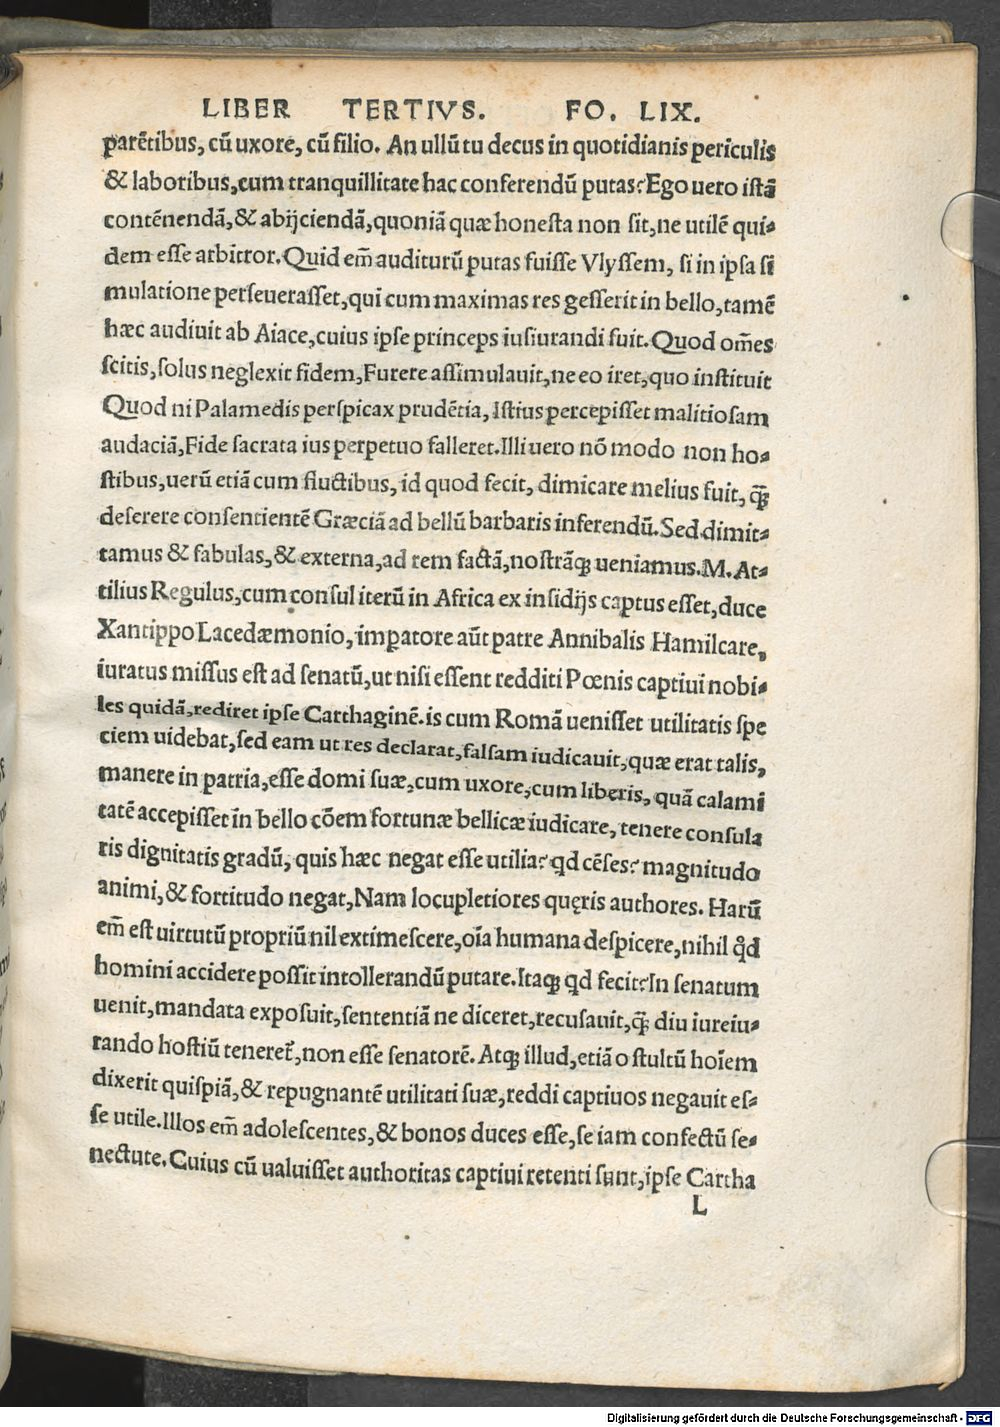 LIBER TERTIVS. FO. LIX.
parētibus, cū uxore, cū filio. An ullū tu decus in quotidianis periculis
& laboribus, cum tranquillitate hac conferendū putas? Ego uero istā
contēnendā, & abijciendā, quoniā quæ honesta non sit, ne utilē qui-
dem esse arbitror. Quid em̄ auditurū putas fuisse Vlyssem, si in ipsa si
mulatione perseuerasset, qui cum maximas res gesserit in bello, tamē
hæc audiuit ab Aiace, cuius ipse princeps iusiurandi fuit. Quod om̄es
scitis, solus neglexit fidem, Furere assimulauit, ne eo iret, quo instituit
Quod ni Palamedis perspicax prudētia, Istius percepisset malitiosam
audaciā, Fide sacrata ius perpetuo falleret. Illi uero nō modo non ho-
stibus, uerū etiā cum fluctibus, id quod fecit, dimicare melius fuit, q̄ꝫ
deserere consentientē Græciā ad bellū barbaris inferendū. Sed dimit-
tamus & fabulas, & externa, ad rem factā, nostrāqꝫ ueniamus. M. At-
tilius Regulus, cum consul iterū in Africa ex insidijs captus esset, duce
Xantippo Lacedæmonio, impatore aūt patre Annibalis Hamilcare,
iuratus missus est ad senatū, ut nisi essent redditi Pœnis captiui nobi-
les quidā, rediret ipse Carthaginē. is cum Romā uenisset utilitatis spe
ciem uidebat, sed eam ut res declarat, falsam iudicauit, quæ erat talis,
manere in patria, esse domi suæ, cum uxore, cum liberis, quā calami
tatē accepisset in bello cōem fortunæ bellicæ iudicare, tenere consula
ris dignitatis gradū, quis hæc negat esse utilia? qd cēses? magnitudo
animi, & fortitudo negat, Nam locupletiores quęris authores. Harū
em̄ est uirtutū propriū nil extimescere, oīa humana despicere, nihil qd
homini accidere possit intollerandū putare. Itaqꝫ qd fecit? In senatum
uenit, mandata exposuit, sententiā ne diceret, recusauit, q̄ꝫ diu iureiu-
rando hostiū teneret̄, non esse senatorē. Atqꝫ illud, etiā o stultū hoīem
dixerit quispiā, & repugnantē utilitati suæ, reddi captiuos negauit es-
se utile. Illos em̄ adolescentes, & bonos duces esse, se iam confectū se-
nectute. Cuius cū ualuisset authoritas captiui retenti sunt, ipse Cartha
L
Digitalisierung gefördert durch die Deutsche Forschungsgemeinschaft - DFG